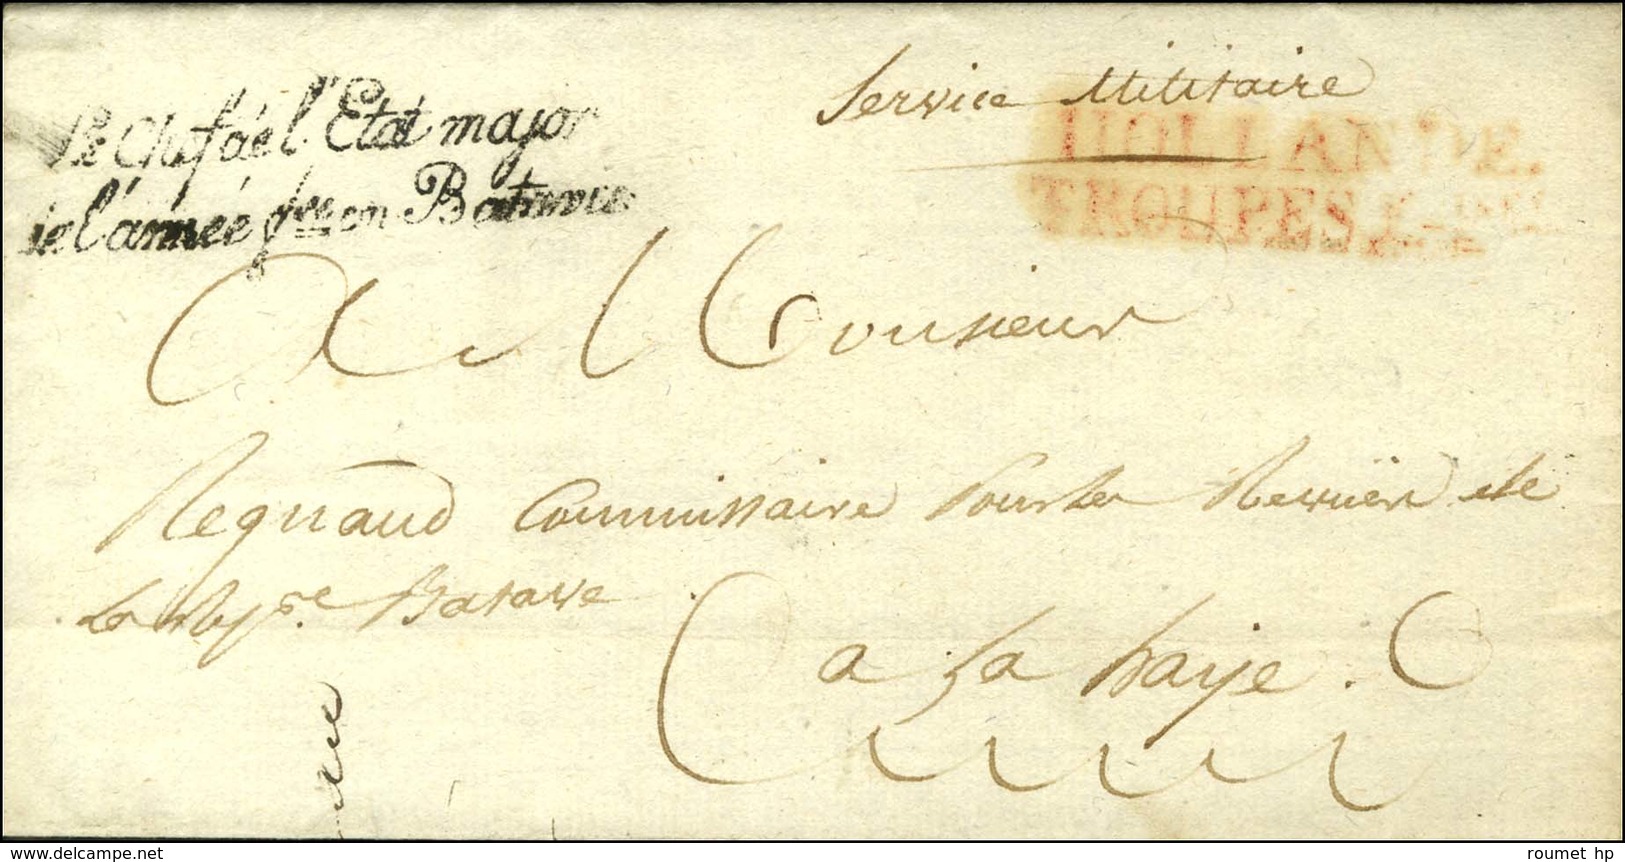 Service Militaire
Le Chef de l'Etat major
de l'armée fse en Batavie
HOLLANDE.
TROUPES F-SES
A Monsieur
Regnaud Commissaire Pour les Revües de
La Rep.e Batave
a La haye.
roumet hp